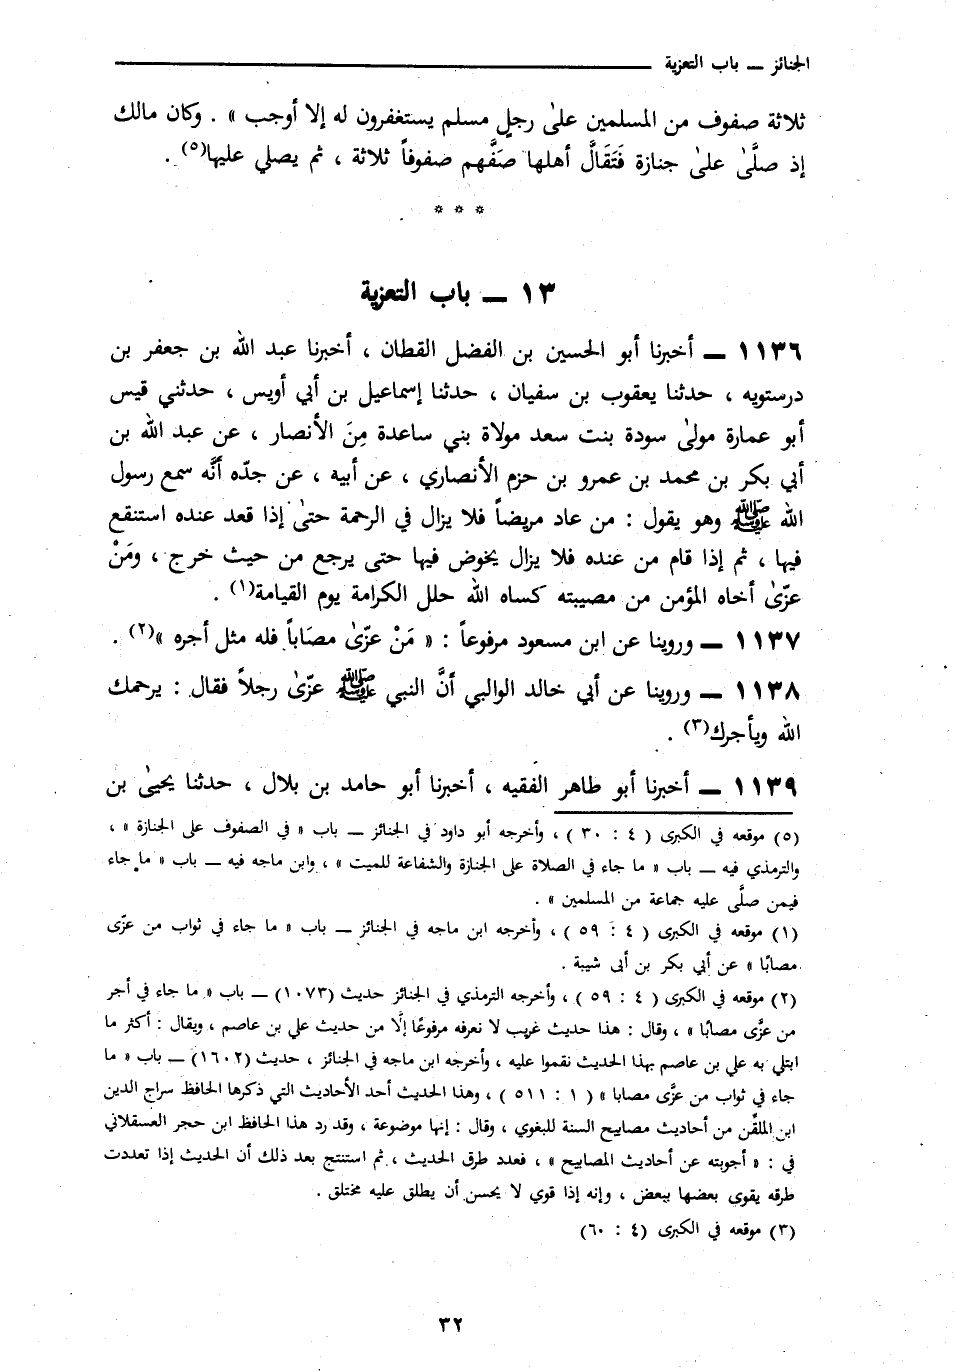 الجنائز — باب التعزية
ثلاثة صفوف من المسلمين علىٰ رجلٍ مسلم يستغفرون له إلا أوجب » . وكان مالك
إذ صلَّىٰ علىٰ جنازة فَتَقَالَّ أهلها صَفَّهم صفوفاً ثلاثة ، ثم يصلي عليها(٥) .
* * *
١٣ — باب التعزية
١١٣٦ — أخبرنا أبو الحسين بن الفضل القطان ، أخبرنا عبد الله بن جعفر بن
درستويه ، حدثنا يعقوب بن سفيان ، حدثنا إسماعيل بن أبي أويس ، حدثني قيس
أبو عمارة مولىٰ سودة بنت سعد مولاة بني ساعدة مِنَ الأنصار ، عن عبد الله بن
أبي بكر بن محمد بن عمرو بن حزم الأنصاري ، عن أبيه ، عن جدّه أنَّه سمع رسول
الله ﷺ وهو يقول : من عاد مريضاً فلا يزال في الرحمة حتىٰ إذا قعد عنده استنقع
فيها ، ثم إذا قام من عنده فلا يزال يخوض فيها حتى يرجع من حيث خرج ، ومَنْ
عزّىٰ أخاه المؤمن من مصيبته كساه الله حلل الكرامة يوم القيامة(١) .
١١٣٧ — وروينا عن ابن مسعود مرفوعاً : « مَنْ عزّىٰ مصَاباً فله مثل أجره »(٢) .
١١٣٨ — وروينا عن أبي خالد الوالبي أنَّ النبي ﷺ عزّىٰ رجلاً فقال : يرحمك
الله ويأجرك(٣) .
١١٣٩ — أخبرنا أبو طاهر الفقيه ، أخبرنا أبو حامد بن بلال ، حدثنا يحيىٰ بن
(٥) موقعه في الكبرى ( ٤ : ٣٠ ) ، وأخرجه أبو داود في الجنائز — باب « في الصفوف على الجنازة » ،
والترمذي فيه — باب « ما جاء في الصلاة على الجنازة والشفاعة للميت » ، وابن ماجه فيه — باب « ما جاء
فيمن صلَّى عليه جماعة من المسلمين » .
(١) موقعه في الكبرى ( ٤ : ٥٩ ) ، وأخرجه ابن ماجه في الجنائز — باب « ما جاء في ثواب من عزّى
مصابًا » عن أبي بكر بن أبى شيبة .
(٢) موقعه في الكبرى ( ٤ : ٥٩ ) ، وأخرجه الترمذي في الجنائز حديث (١٠٧٣) — باب « ما جاء في أجر
من عزَّى مصابًا » ، وقال : هذا حديث غريب لا نعرفه مرفوعًا إلَّا من حديث علي بن عاصم ، ويقال : أكثر ما
ابتلي به علي بن عاصم بهذا الحديث نقموا عليه ، وأخرجه ابن ماجه في الجنائز ، حديث (١٦٠٢) — باب « ما
جاء في ثواب من عزَّى مصابا » ( ١ : ٥١١ ) ، وهذا الحديث أحد الأحاديث التي ذكرها الحافظ سراج الدين
ابن الملقّن من أحاديث مصابيح السنة للبغوي ، وقال : إنها موضوعة ، وقد رد هذا الحافظ ابن حجر العسقلاني
في : « أجوبته عن أحاديث المصابيح » ، فعدد طرق الحديث ، ثم استنتج بعد ذلك أن الحديث إذا تعددت
طرقه يقوى بعضها ببعض ، وإنه إذا قوي لا يحسن أن يطلق عليه مختلق .
(٣) موقعه في الكبرى (٤ : ٦٠)
٣٢